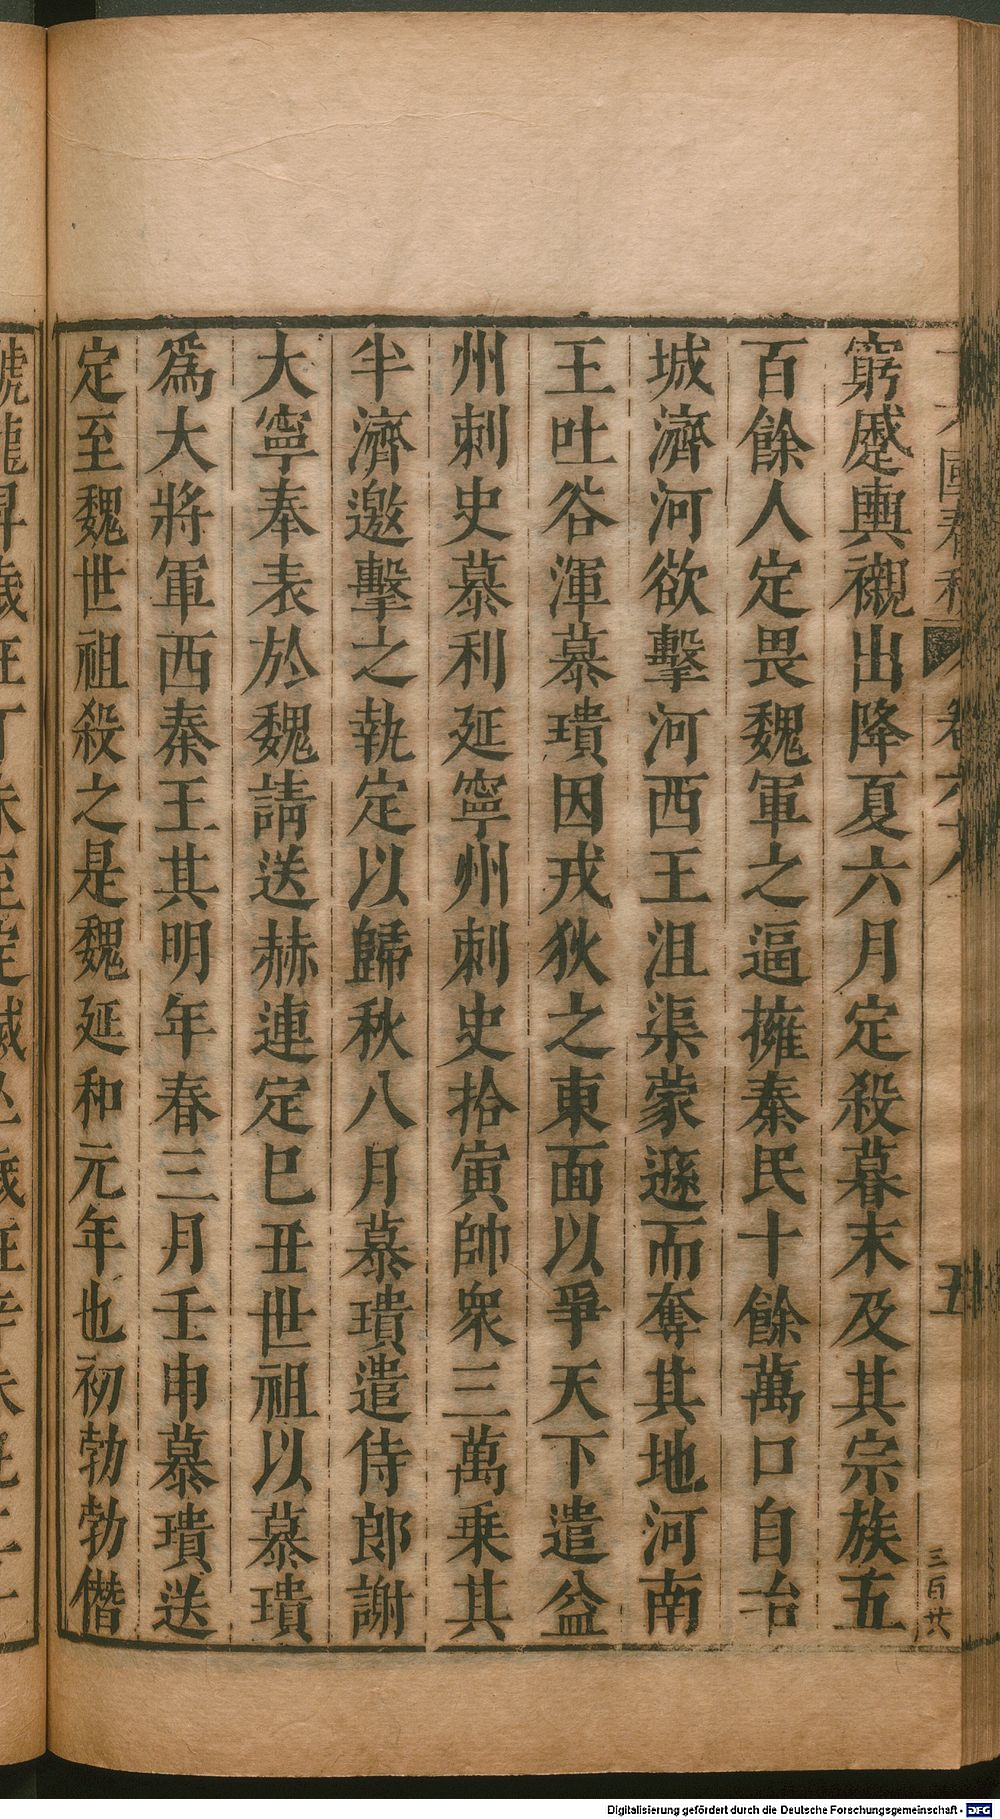 十六國春秋 卷六十八 五 三百廿
窮蹙輿櫬出降夏六月定殺暮末及其宗族五
百餘人定畏魏軍之逼擁秦民十餘萬口自冶
城濟河欲擊河西王沮渠蒙遜而奪其地河南
王吐谷渾慕璝因戎狄之東面以爭天下遣益
州刺史慕利延寧州刺史拾寅帥衆三萬乗其
半濟邀擊之執定以歸秋八月慕璝遣侍郎謝
大寧奉表於魏請送赫連定巳丑世祖以慕璝
爲大將軍西秦王其明年春三月壬申慕璝送
定至魏世祖殺之是魏延和元年也初勃勃僭
Digitalisierung gefördert durch die Deutsche Forschungsgemeinschaft - DFG